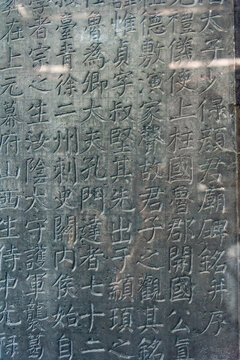 太子少保顏君廟碑銘并序
充禮儀使上柱國魯郡開國公真
德敷演家聲故君子之觀其銘
諱惟貞字叔堅其先出于顓頊之
仕魯為卿大夫孔門達者七十二
臺青徐二州刺史關內侯始自
者宗之生汝陰太守護軍襲葛
在上元幕府山西生侍中光祿